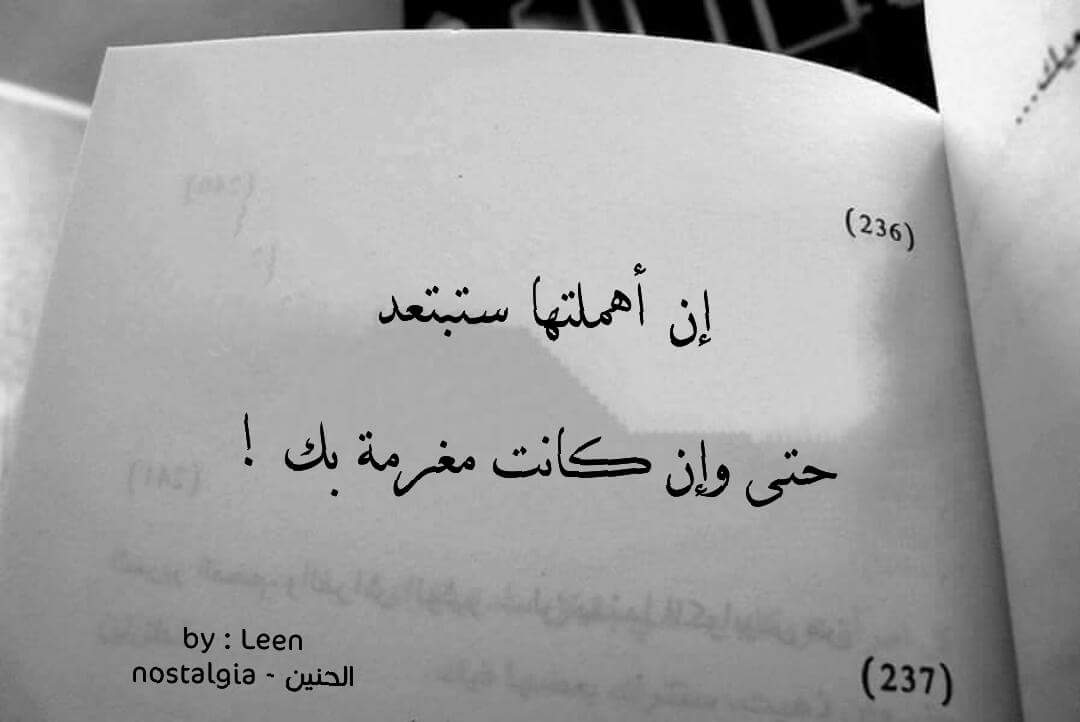 (236)
إن أهملتها ستبتعد
حتى وإن كانت مغرمة بك !
by : Leen
nostalgia - الحنين
(237)